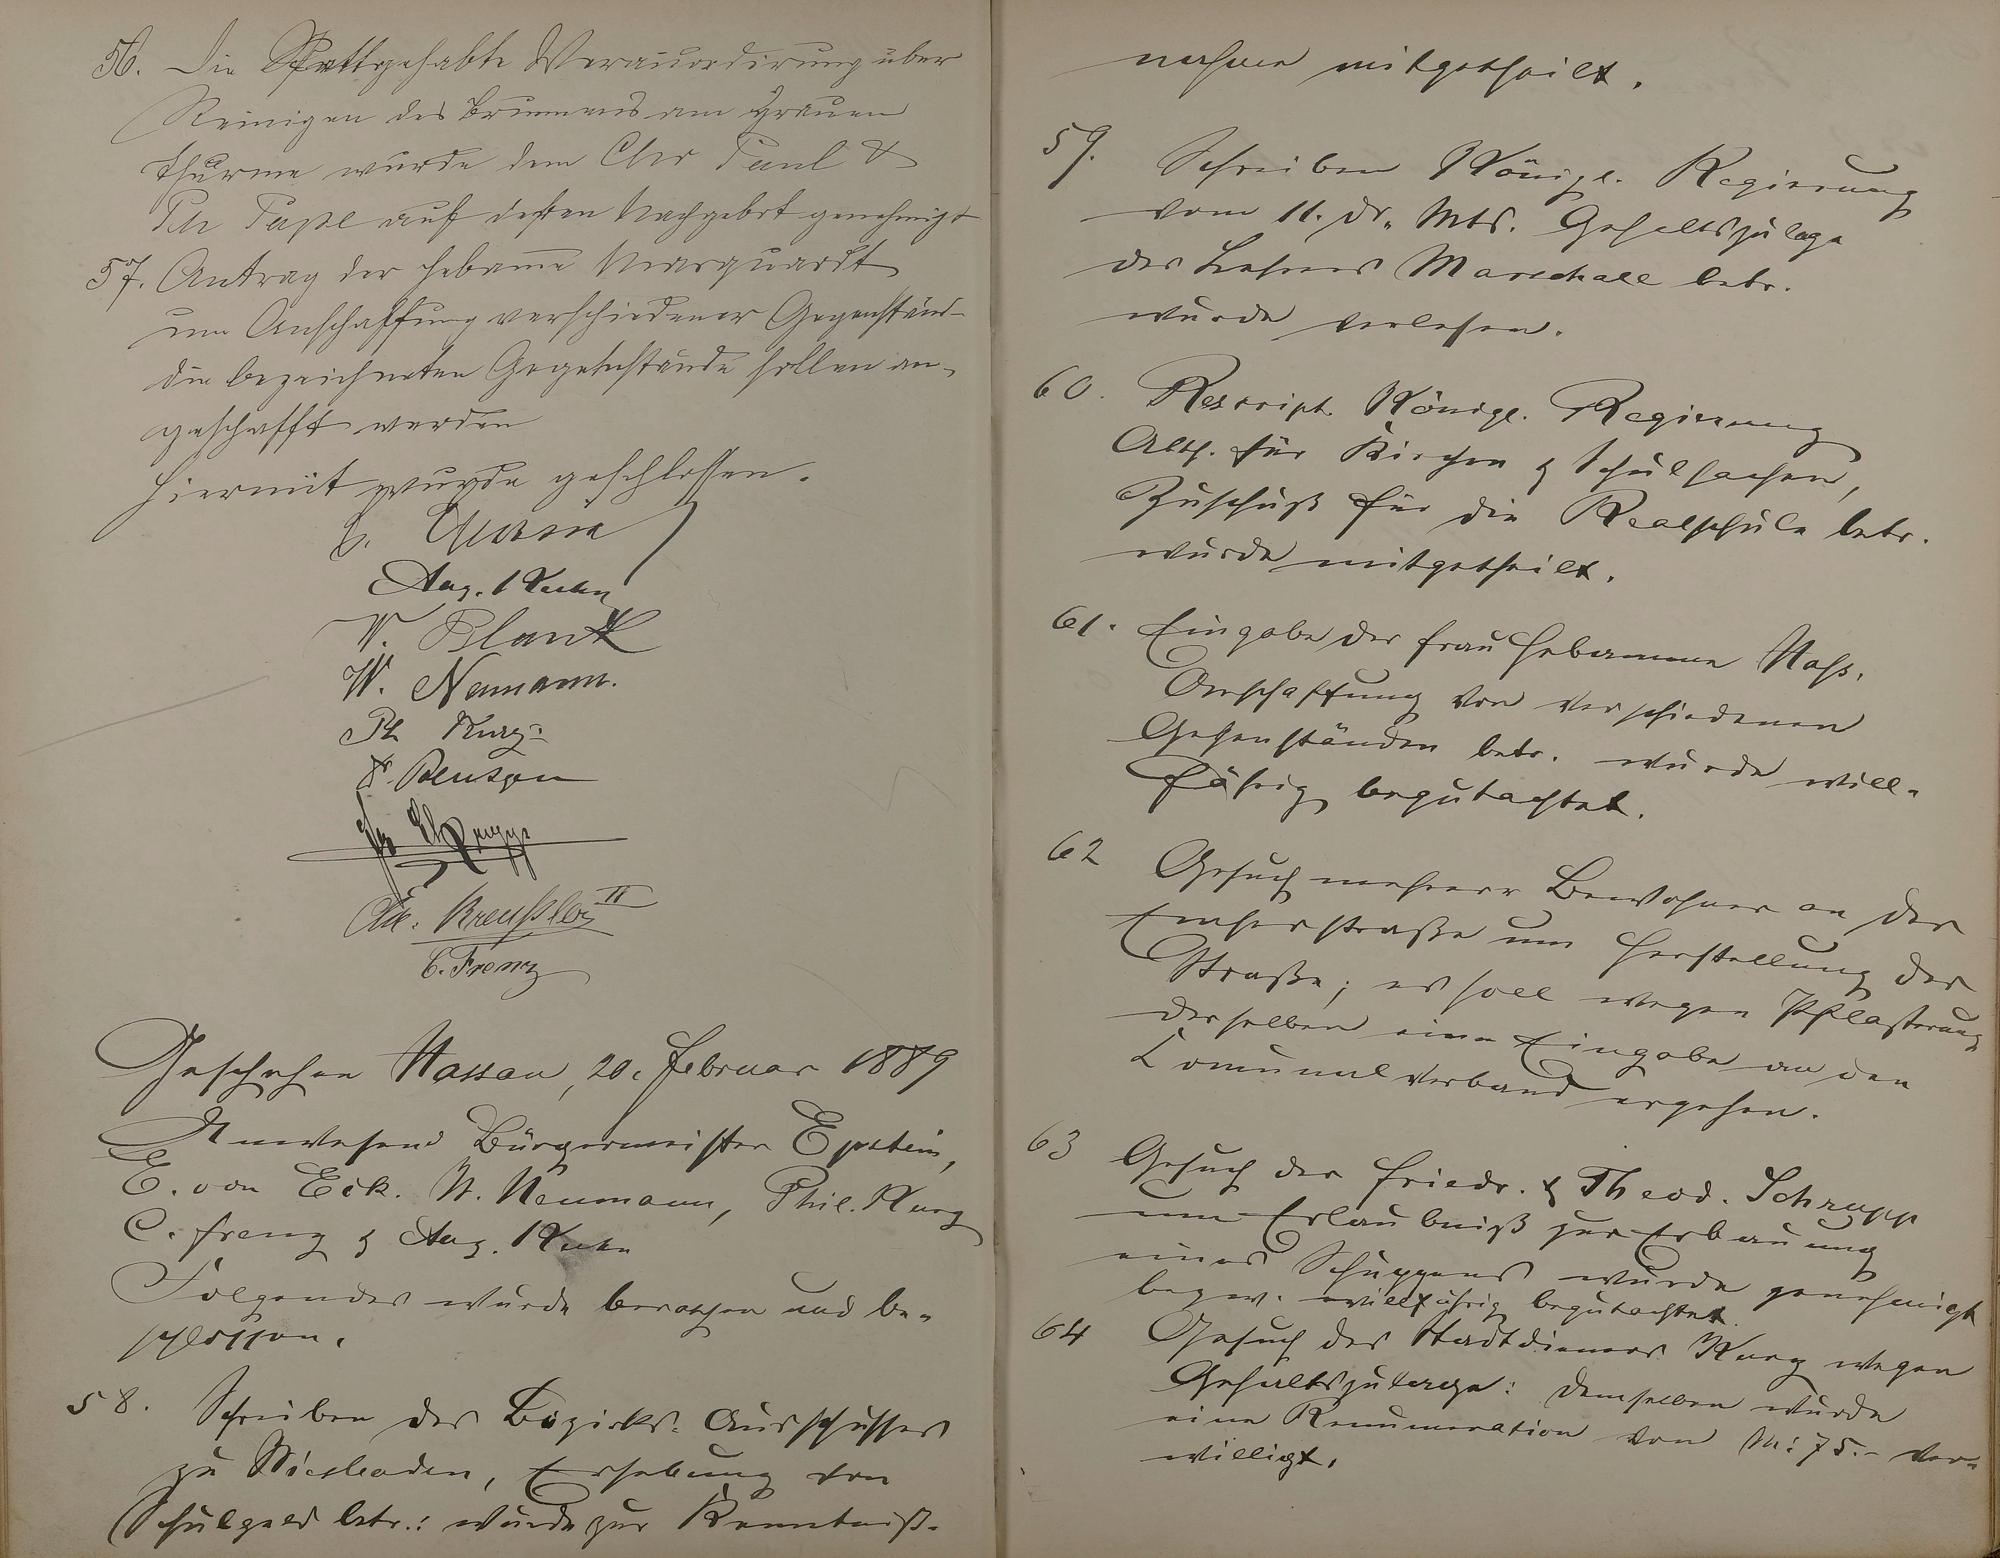 56. Die Stattgehabte Veraccordirung über
Reinigen des Brunnens am Grauen
Thurme wurde dem Chr Paul &
Ph auf deßen Nachgebot genehmigt
57. Antrag der Hebamme Marquardt
um Anschaffung verschiedener Gegenständ-
die bezeichneten Gegenstände sollen an-
geschafft werden
Hiermit wurde geschlossen.
Aug. Kuhn
W. Blank
W. Neumann.
Ph Kurz
Chr. Kreußler II
C. Frenz
Geschehen Nassau, 20. Februar 1889
Anwesend Bürgermeister Epstein,
E. von Eck. W. Neumann, Phil. Kurz
C. Frenz & Aug. Kuhn
Folgendes wurde berathen und be-
schlossen.
58. Schreiben des Bezirks-Ausschusses
zu Wiesbaden, Erhebung von
Schulgeld betr.: wurde zur Kenntniß-
nahme mitgetheilt.
59. Schreiben Königl. Regierung
vom 11. ds. Mts. Gehaltszulage
des Lehrers Marschall betr.
wurde verlesen.
60. Rescript Königl. Regierung
Abth. für Kirchen & Schulsachen,
Zuschuß für die Realschule betr.
wurde mitgetheilt.
61. Eingabe der Frau Hebamme Noß.
Anschaffung von verschiedenen
Gegenständen betr. wurde will-
fährig begutachtet.
62 Gesuch mehrerer Bewohner an der
Emserstraße um Herstellung der
Straße; es soll wegen Pflasterung
derselben eine Eingabe an den
Comunalverband ergehen.
63 Gesuch der Friedr. & Theod. Schrupp
um Erlaubniß zur Erbauung
eines Schuppens wurde genehmigt
bezw. willfährig begutachtet.
64 Gesuch des Stadtdieners Kurz wegen
Gehaltszulage: demselben wurde
eine Renumeration von M: 75.- ver-
willigt.